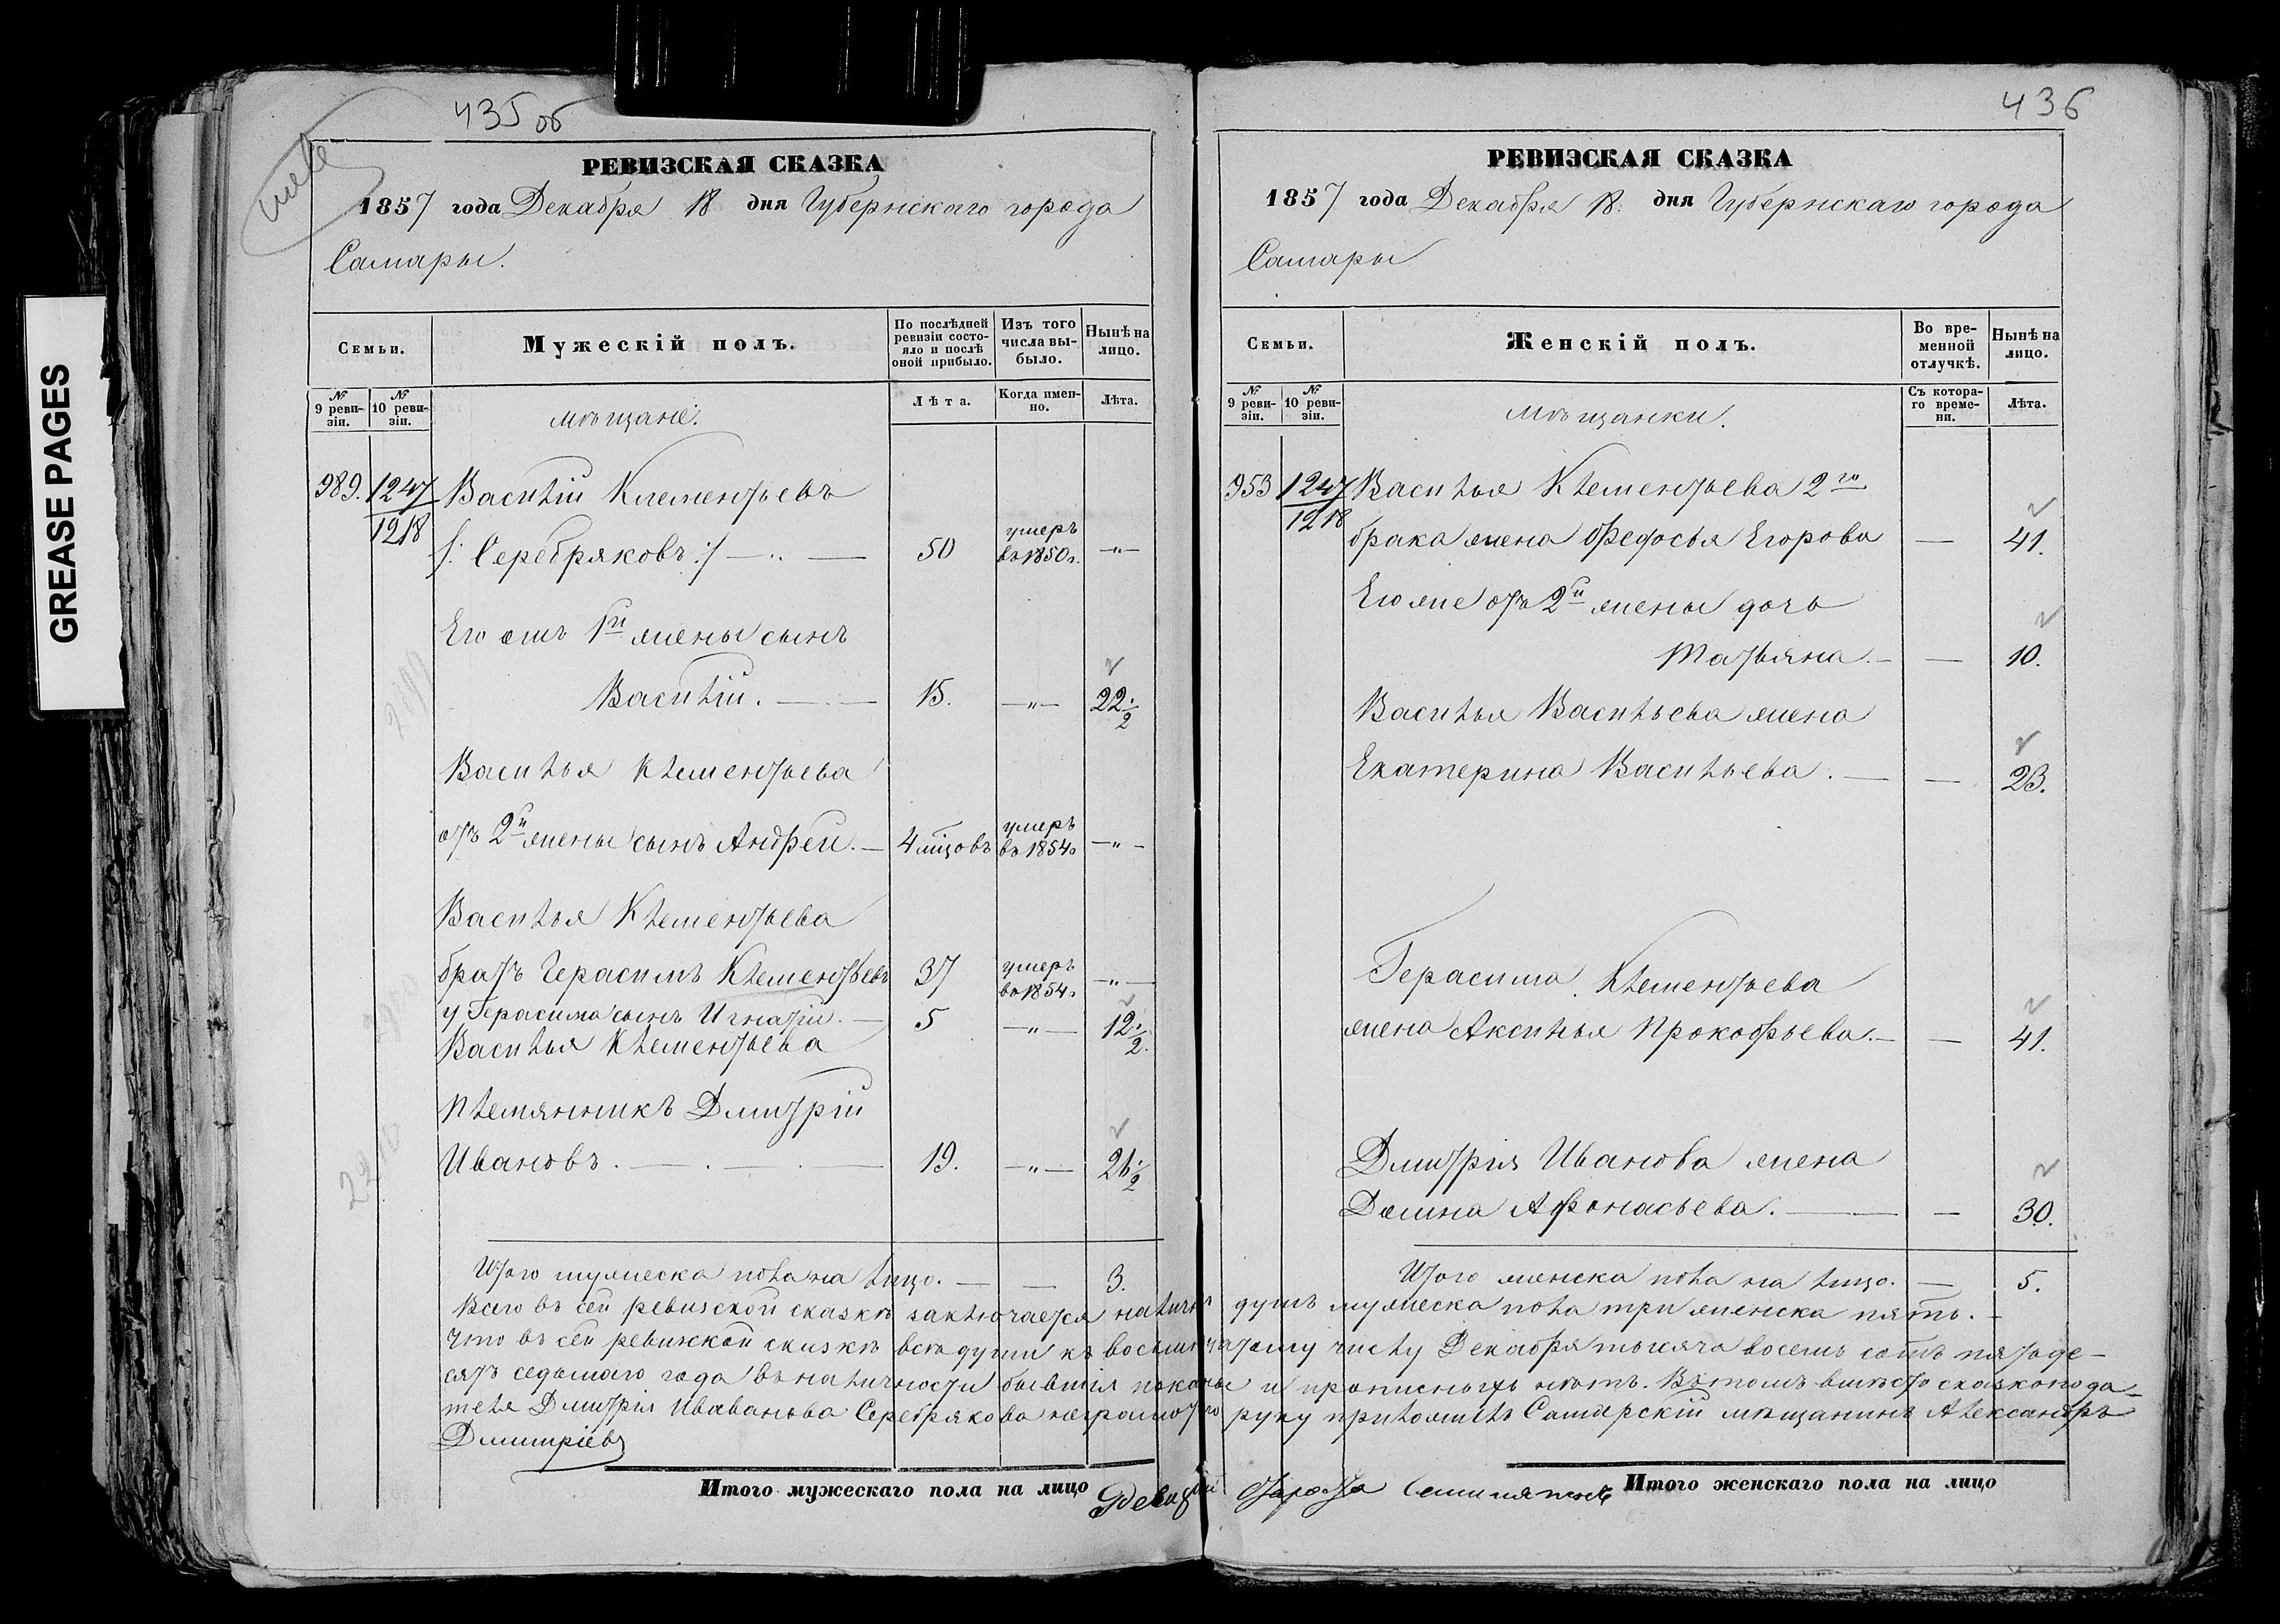 GREASE PAGES
435 об
РЕВИЗСКАЯ СКАЗКА
1857 года Декабря 18 дня Губернскаго города
Самары.
Семьи.
Мужескій полъ.
По послѣдней ревизіи состо-
яло и послѣ оной прибыло.
Изъ того числа вы-
было.
Нынѣ на лицо.
№ 9 реви-
зіи.
№ 10 реви-
зіи.
Лѣта.
Когда имен-
но.
Лѣта.
мѣщане.
989. 1247 Василій Клементьевъ
1218 /: Серебряковъ :/ — 50 умеръ въ 1850 г. — " —
Его отъ 1й жены сынъ
Василій. — 15. — " — 22 1/2
Василья Клементьева
отъ 2й жены сынъ Андрей. — 4 мѣцовъ умеръ въ 1854 г. — " —
Василья Клементьева
братъ Герасимъ Клементьевъ 37 умеръ въ 1854 г. — " —
у Герасима сынъ Игнатій. — 5 — " — 12 1/2.
Василья Клементьева
племянникъ Дмитрій
Ивановъ. — 19. — " — 26 1/2
Итого мужеска пола на лицо. — — 3.
436
РЕВИЗСКАЯ СКАЗКА
1857 года Декабря 18. дня Губернскаго города
Самары
Семьи.
Женскій полъ.
Во вре-
менной отлучкѣ.
Нынѣ на лицо.
№ 9 реви-
зіи.
№ 10 реви-
зіи.
Съ котора-
го време-
ни.
Лѣта.
мѣщанки.
953 1247 Василья Клементьева 2го
1218 брака жена Федосья Егорова — 41.
Его же отъ 2й жены дочь
Татьяна. — — 10.
Василья Васильева жена
Екатерина Васильева. — — 23.
Герасима Клементьева
жена Аксинья Прокофьева. — — 41.
Дмитрія Иванова жена
Домна Афонасьева. — — 30.
Итого женска пола на лицо. — 5.
Всего въ сей ревизской сказкѣ заключается наличныхъ душъ мужеска пола три женска пять. —
Что въ сей ревизской сказкѣ всѣ души къ восемнадцатому числу Декабря тысяча восемь сотъ пятьде-
сятъ седьмаго года въ наличности бывшія показаны и прописныхъ нѣтъ. Въ томъ вмѣсто сказкопода-
теля Дмитрія Ивaванова Серебрякова неграмотнаго руку приложилъ Самарскій мѣщанинъ Александръ
Дмитріевъ
Итого мужескаго пола на лицо
Староста
Итого женскаго пола на лицо